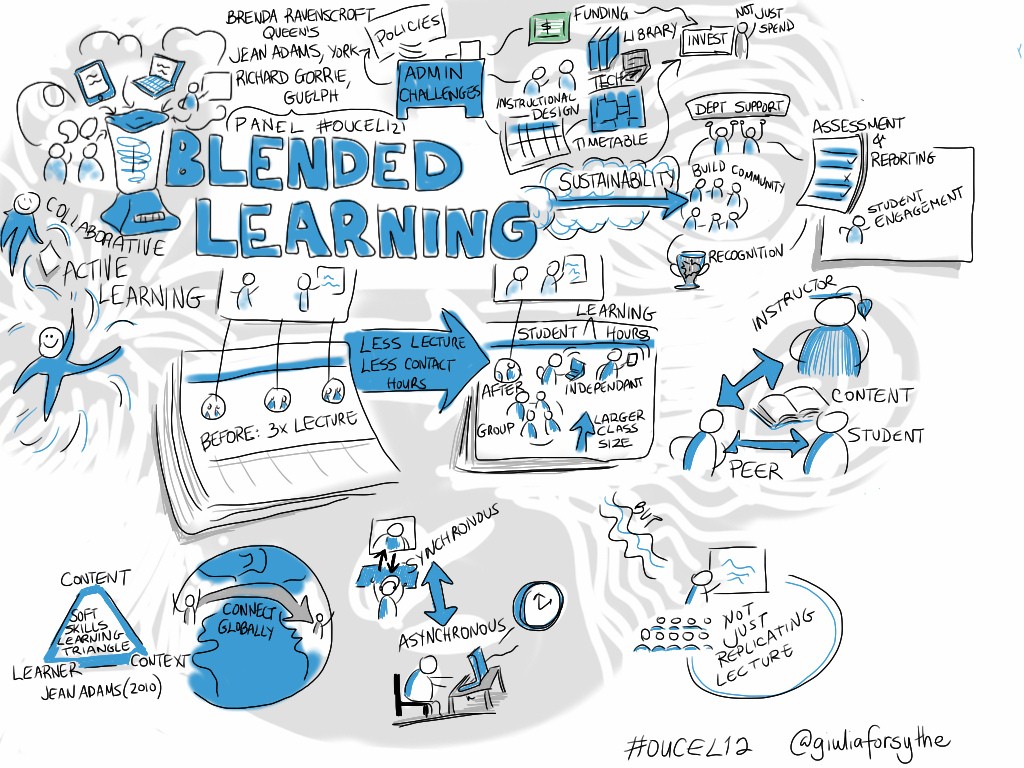 BRENDA RAVENSCROFT
QUEEN'S
JEAN ADAMS, YORK
RICHARD GORRIE,
GUELPH
PANEL #OUCEL12!
POLICIES
ADMIN
CHALLENGES
FUNDING
LIBRARY
TECH
INSTRUCTIONAL
DESIGN
TIMETABLE
INVEST
NOT JUST
SPEND
BLENDED
LEARNING
SUSTAINABILITY
DEPT SUPPORT
BUILD COMMUNITY
RECOGNITION
ASSESSMENT
&
REPORTING
STUDENT
ENGAGEMENT
COLLABORATIVE
ACTIVE
LEARNING
BEFORE: 3X LECTURE
LESS LECTURE
LESS CONTACT
HOURS
LEARNING
STUDENT ∧ HOURS
AFTER
INDEPENDANT
GROUP
LARGER
CLASS
SIZE
INSTRUCTOR
CONTENT
STUDENT
PEER
CONTENT
SOFT
SKILLS
LEARNING
TRIANGLE
LEARNER
CONTEXT
JEAN ADAMS (2010)
CONNECT
GLOBALLY
SYNCHRONOUS
ASYNCHRONOUS
BUT
NOT
JUST
REPLICATING
LECTURE
#OUCEL12
@giuliaforsythe